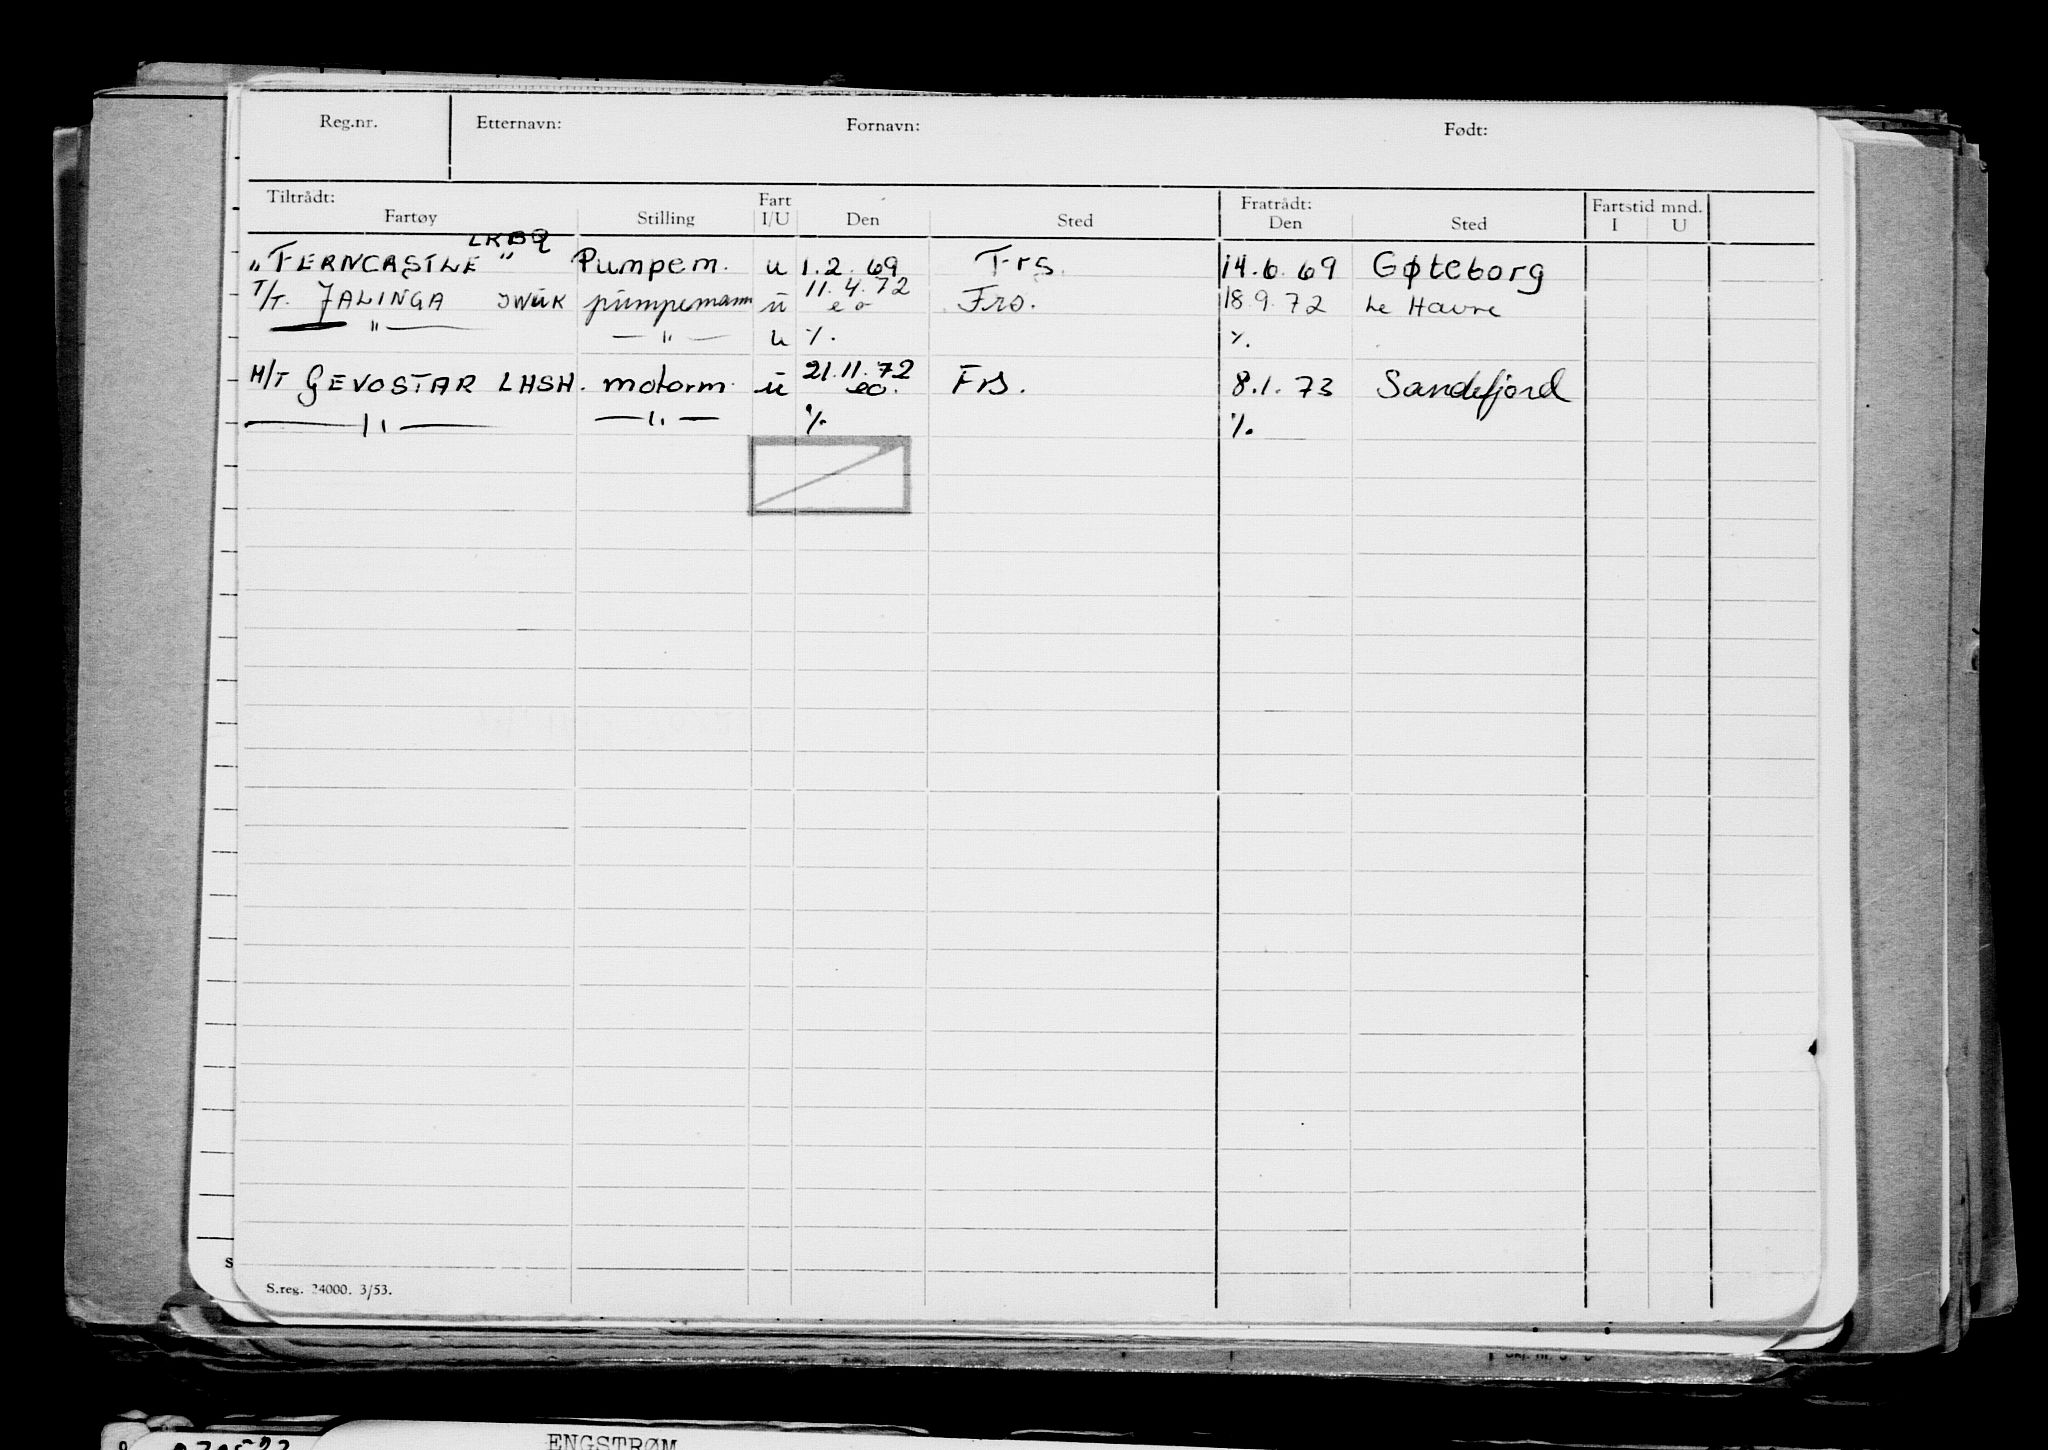 Reg.nr. Etternavn: Fornavn: Født:
Tiltrådt: Fart Fratrådt: Fartstid mnd.
Fartøy Stilling I/U Den Sted Den Sted I U
LKBQ
"FERNCASTLE" Pumpem. u 1.2.69 Frs. 14.6.69 Gøteborg
11.4.72
T/T. JALINGA JWUK pumpemann u eo Frs. 18.9.72 Le Havre
— " — — " — u %. %.
21.11.72
M/T GEVOSTAR LHSH. motorm. u eo. Frs. 8.1.73 Sandefjord
— " — — " — %. %.
S.reg. 24000. 3/53.
ENGSTRØM